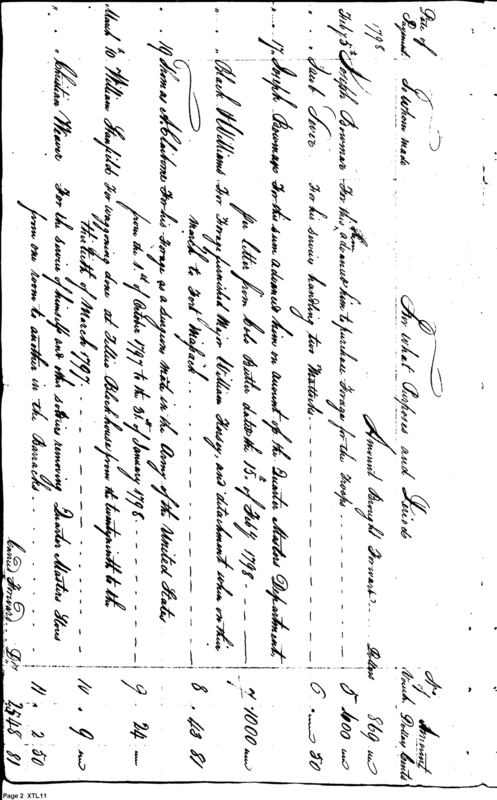 Date of Payment To Whom made For What Purposes and Periods No. of Vouch. Amount Dollars Cents
1798 Amount Brought Forward Dollars 869
Feby 5th Joseph Bowmar For this sum advanced him to purchase Forage for the Troops 5 400
" " Jacob For his services handling two Mattocks 6 . 50
" 17 Joseph Bowmar For this sum advanced him on account of the Quarter Masters Department
per letter from Colo Butler dated the 15th of Feby 1798 7 1000
" " Black & Williams For Forage furnished Major William Kersey and detachment when on their
march to Fort 8 43 81
" 19 Thomas A Claiborne For his Forage as a Surgeons Mate in the Army of the United States
from the 1st of October 1797 to the 31st of January 1798 9 24
March 10th William For waggoning done at Tellico Blockhouse from the twenty ninth to the
thirtieth of March 1797 10 9
" " Christian Weaver For the service of himself and others removing Quarter Masters Stores
from one room to another in the Barracks 11 2 50
Carried Forward Drs 2548 81
Page 2 XTL11